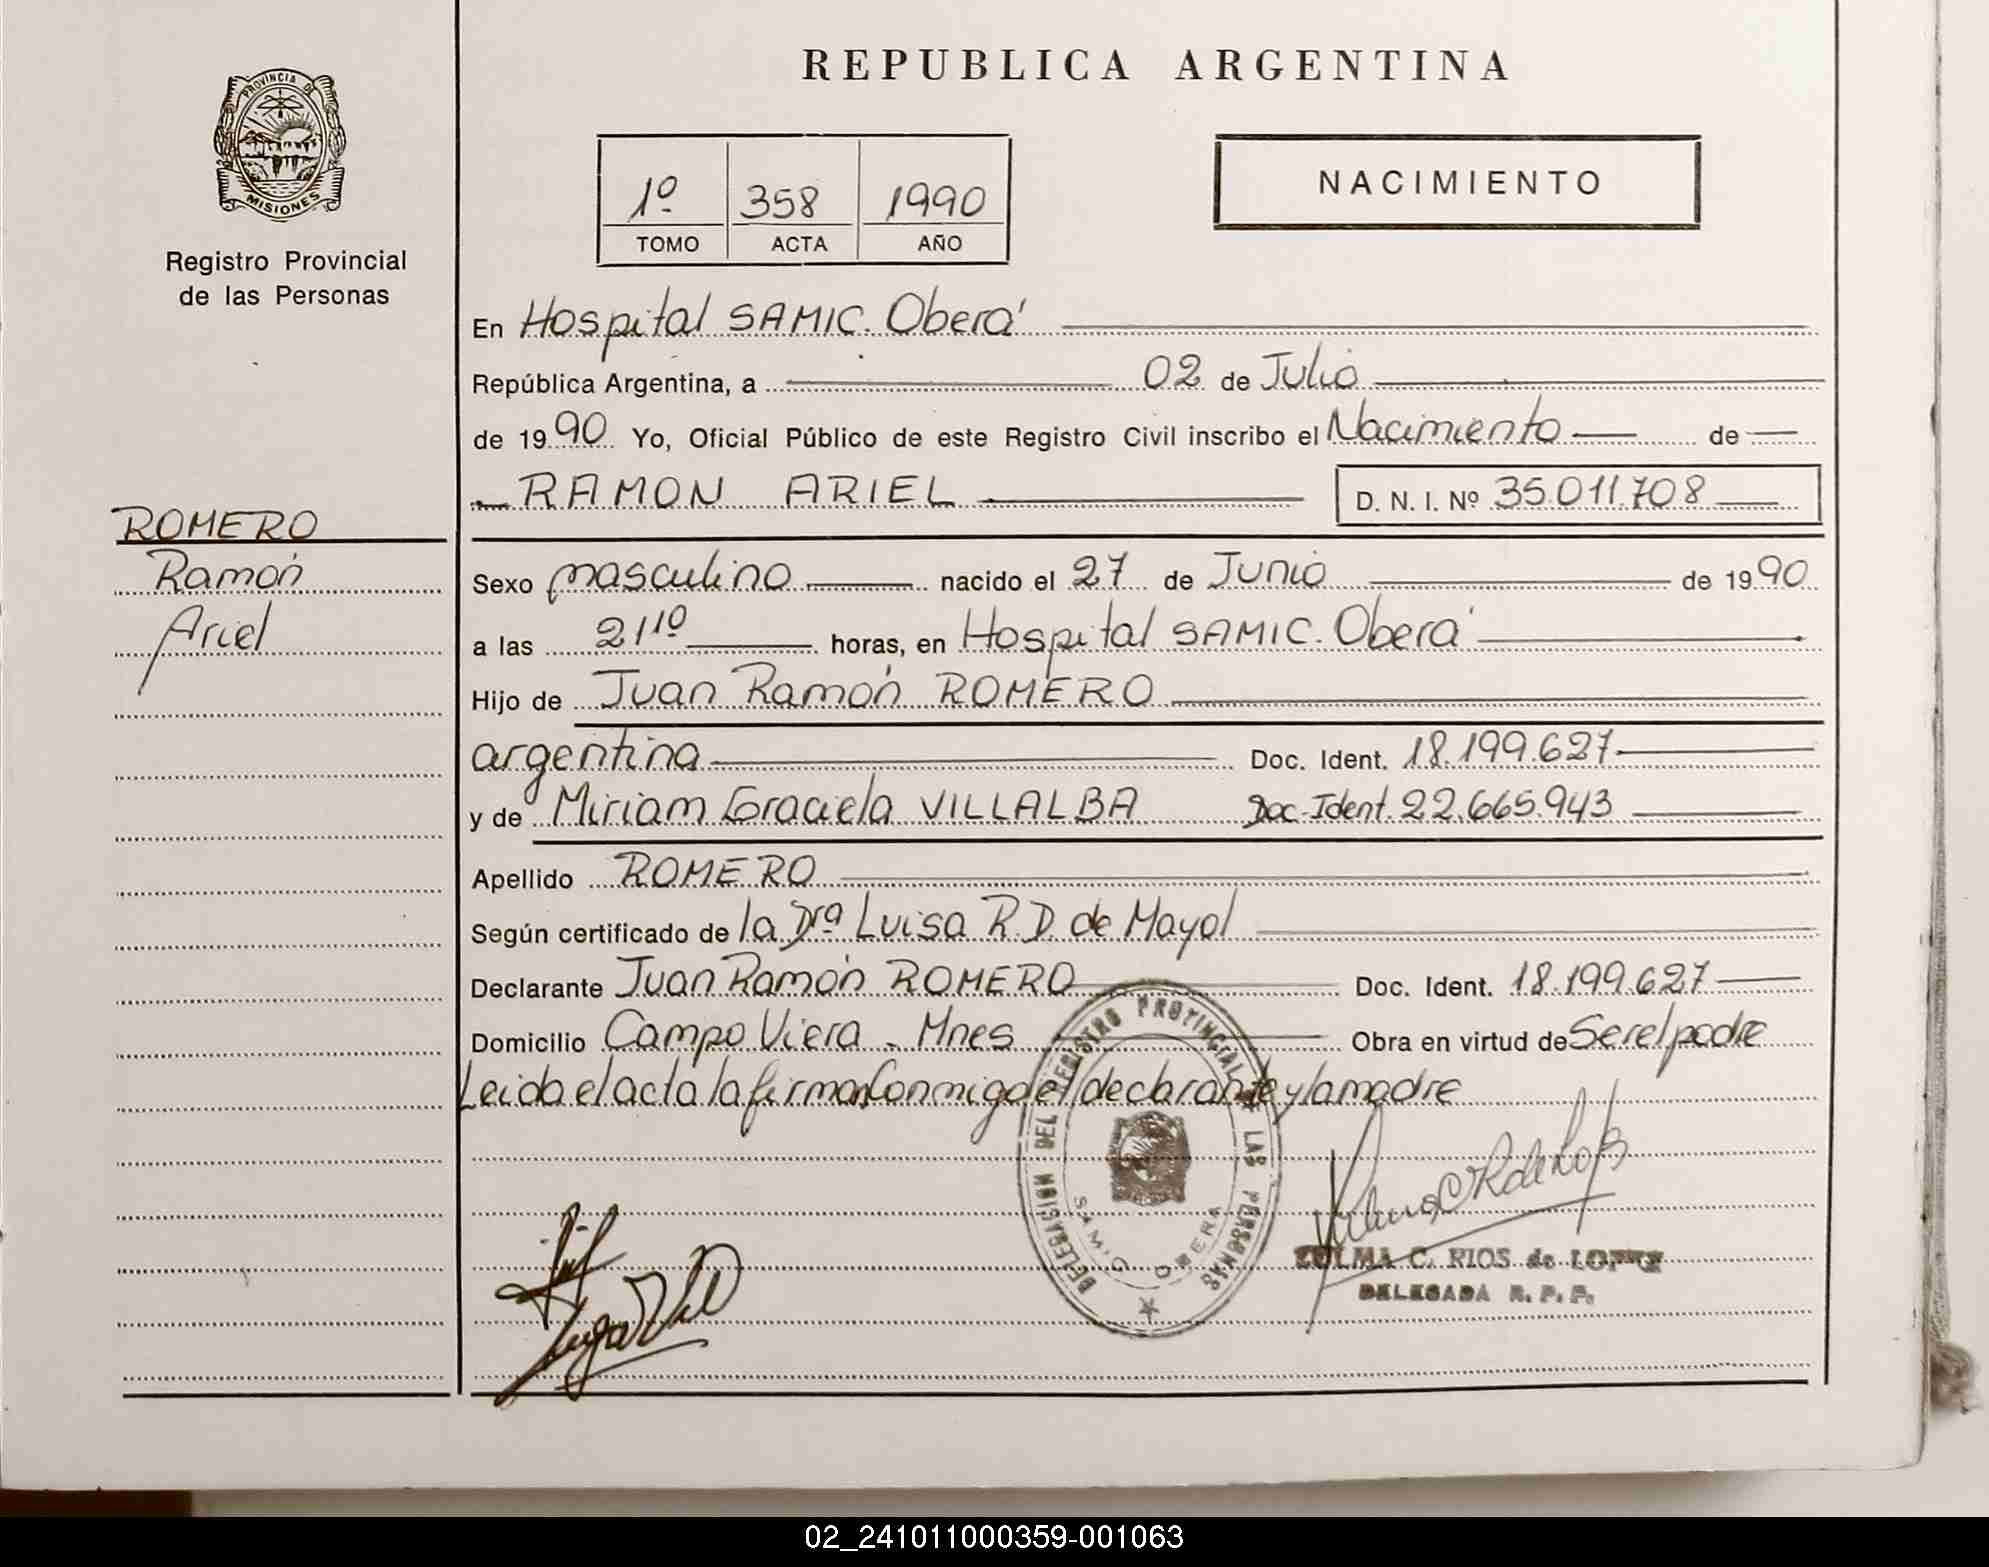 REPUBLICA ARGENTINA
PROVINCIA DE
MISIONES
Registro Provincial
de las Personas
1º 358 1990
TOMO ACTA AÑO
NACIMIENTO
En Hospital SAMIC. Oberá
República Argentina, a 02 de Julio
de 1990 Yo, Oficial Público de este Registro Civil inscribo el Nacimiento de
RAMON ARIEL D. N. I. Nº 35.011.708
ROMERO
Ramón
Ariel
Sexo masculino nacido el 27 de Junio de 1990
a las 21 10 horas, en Hospital SAMIC. Oberá
Hijo de Juan Ramón ROMERO
argentina Doc. Ident. 18.199.627
y de Miriam Graciela VILLALBA Doc. Ident. 22.665.943
Apellido ROMERO
Según certificado de la Dra Luisa R.D. de Mayol
Declarante Juan Ramón ROMERO Doc. Ident. 18.199.627
Domicilio Campo Viera - Mnes Obra en virtud de Ser el padre
Leida el acta la firman conmigo el declarante y la madre
DELEGACION DEL REGISTRO PROVINCIAL LAS PERSONAS
SAMIC OBERA
ZULMA C. RIOS de LOPEZ
DELEGADA R. P. P.
02_241011000359-001063